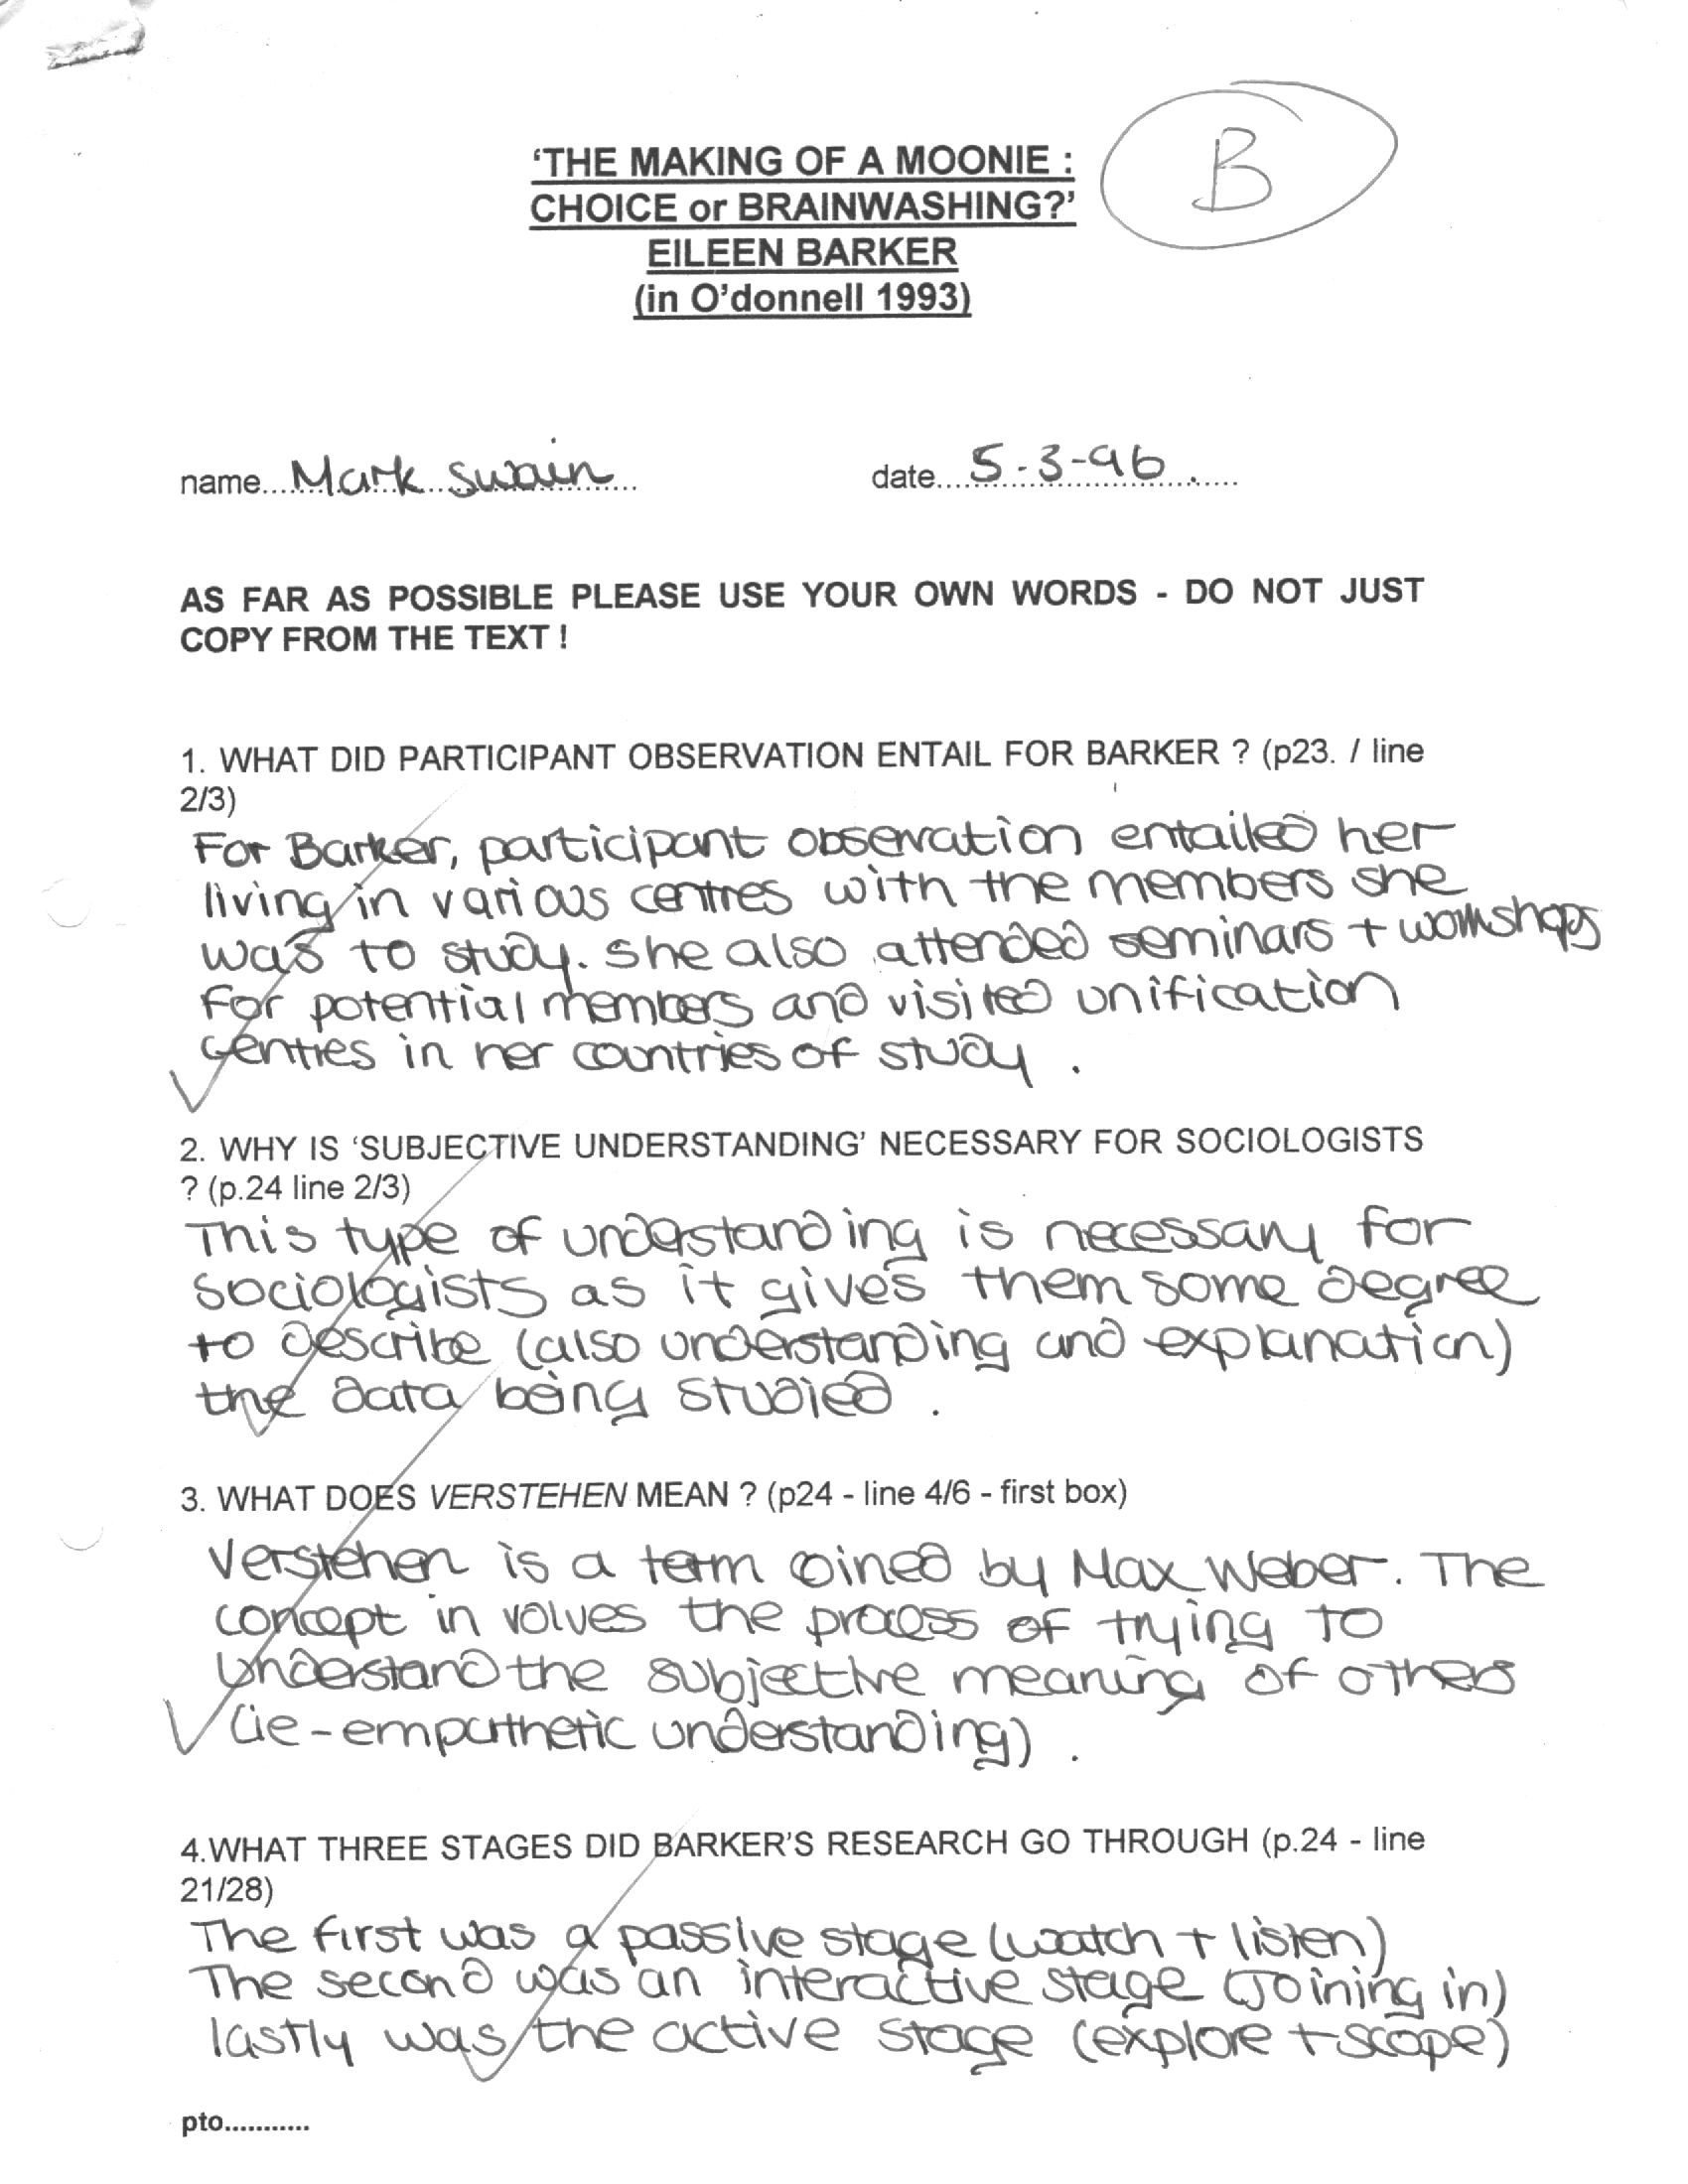 'THE MAKING OF A MOONIE :
CHOICE or BRAINWASHING?'
EILEEN BARKER
(in O'donnell 1993)
B
name....Mark Swain....
date....5-3-96....
AS FAR AS POSSIBLE PLEASE USE YOUR OWN WORDS - DO NOT JUST
COPY FROM THE TEXT !
1. WHAT DID PARTICIPANT OBSERVATION ENTAIL FOR BARKER ? (p23. / line
2/3)
For Barker, participant observation entailed her
living in various centres with the members she
was to study. She also attended seminars + workshops
for potential members and visited unification
centres in her countries of study.
2. WHY IS 'SUBJECTIVE UNDERSTANDING' NECESSARY FOR SOCIOLOGISTS
? (p.24 line 2/3)
This type of understanding is necessary for
sociologists as it gives them some degree
to describe (also understanding and explanation)
the data being studied.
3. WHAT DOES VERSTEHEN MEAN ? (p24 - line 4/6 - first box)
Verstehen is a term coined by Max Weber. The
concept involves the process of trying to
understand the subjective meaning of others
(ie - empathetic understanding).
4.WHAT THREE STAGES DID BARKER'S RESEARCH GO THROUGH (p.24 - line
21/28)
The first was a passive stage (watch + listen)
The second was an interactive stage (Joining in)
lastly was the active stage (explore + scope)
pto...........